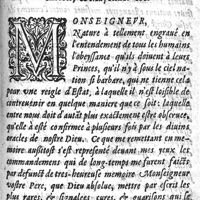 MONSEIGNEVR,
Nature à tellement engraué en
l'entendement de tous les humains
l'obeyssance qu'ils doiuent à leurs
Princes, qu'il n'y à sous le ciel na-
tion si barbare, qui ne tienne cela
pour vne reigle d'Estat, à laquelle il n'est loisible de
contreuenir en quelque maniere que ce soit: laquelle
entre nous doit d'autāt plus exactement estre obseruee,
qu'elle à esté confirmee à plusieurs fois par les diuins
oracles de nostre Dieu. Ce que me remettant en me-
moire aussitost s'est representé deuant mes yeux les
commandemens qui de long-temps me furent faicts
par defunct de tres-heureuse memoire Monseigneur
vostre Pere, que Dieu absolue, mettre par escrit les
plus rares, & signalees cures, & guarisons qui se